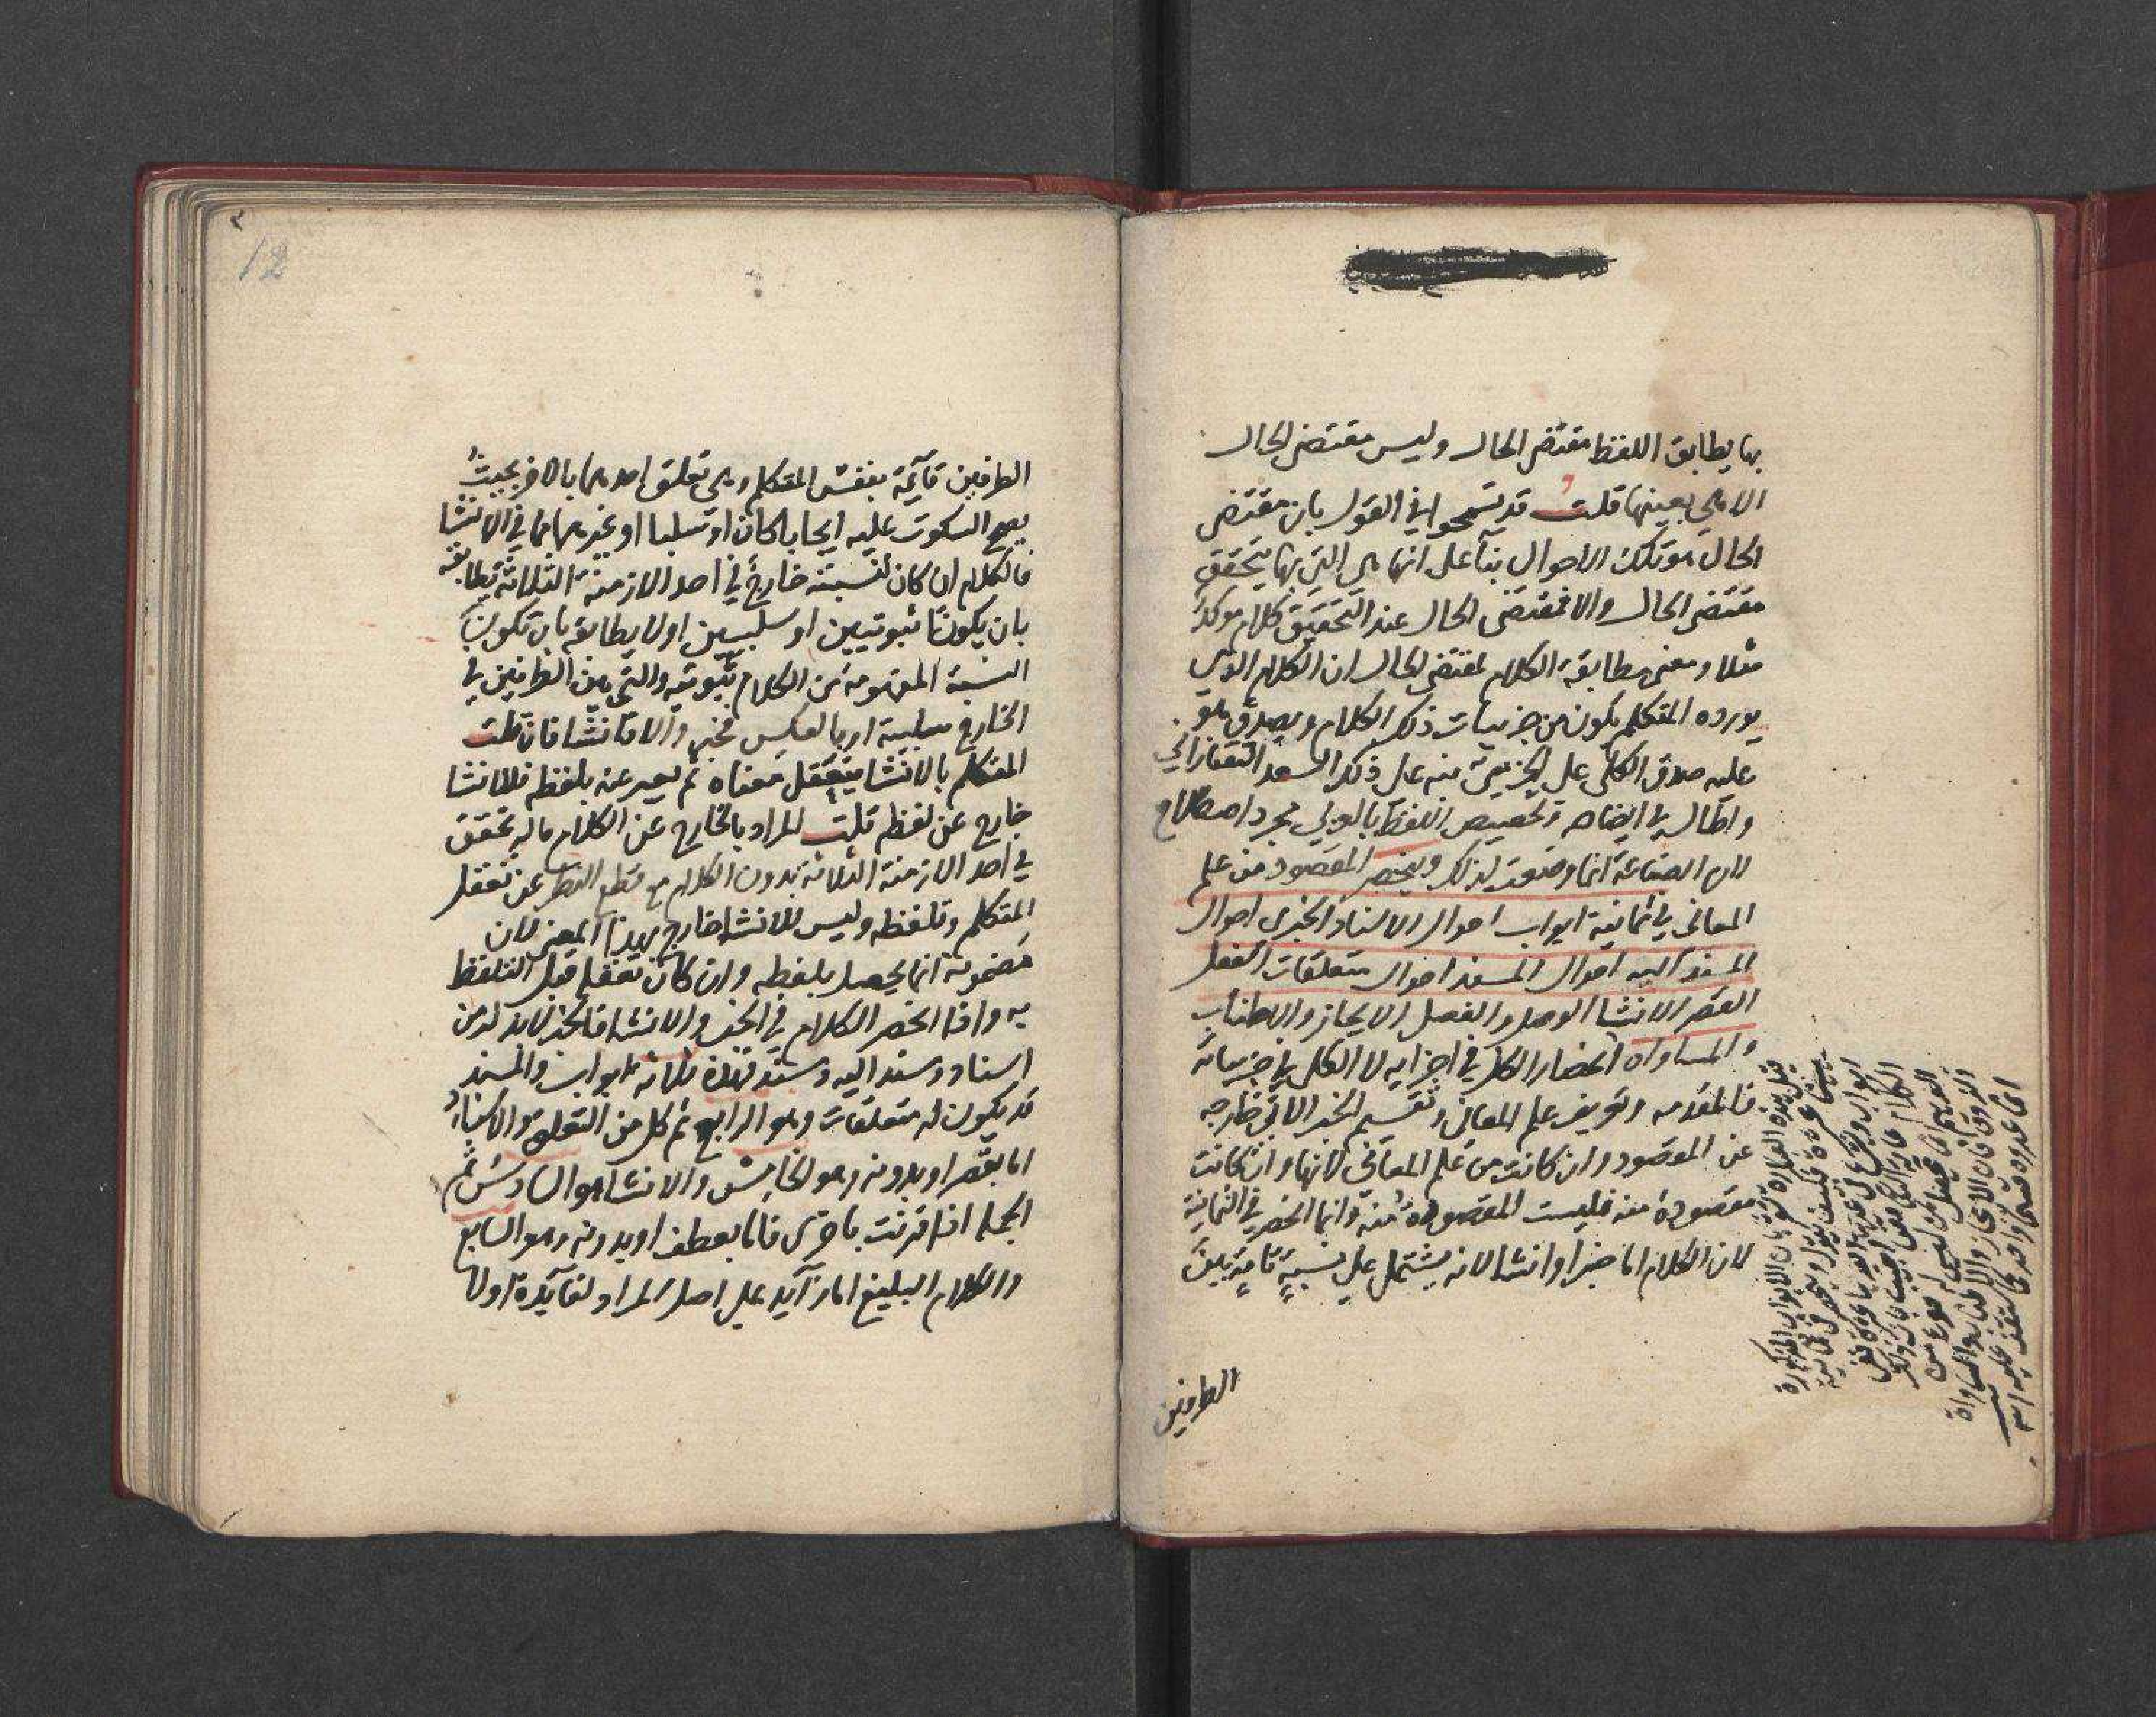 بها يطابق اللفظ مقتضى الحال وليس مقتضى الحال
الا هي بعينها قلت قد تسمحوا في القول بان مقتضى
الحال هو تلك الاحوال بنآ على انها هي التي بها يتحقق
مقتضى الحال والا فمقتضى الحال عند التحقيق كلام موكد
مثلا ومعنى مطابقة الكلام لمقتضى الحال ان الكلام الذي
يورده المتكلم يكون من جزييات ذلك الكلام ويصدق هو
عليه صدق الكلي على الجزيي نبه على ذلك السعد التفتازاني
واطال في ايضاحه وتخصيص اللفظ بالعربي مجرد اصطلاح
لان الصناعة انما وضعت لذلك وينحصر المقصود من علم
المعاني في ثمانية ابواب احوال الاسناد الخبري احوال
المسند اليه احوال المسند احوال متعلقات الفعل
القصر الانشا الوصل والفصل الايجاز والاطناب
والمساواة انحصار الكل في اجزايه لا الكلي في جزيياته
فالمقدمه وتعريف علم المعاني وتقسيم الخبر الاتي خارجه
عن المقصود وان كانت من علم المعاني لانها وان كانت
مقصودة منه فليست المقصودة منه وانما انحصر في الثمانية
لان الكلام اما خبر او انشا لانه يشتمل على نسبة تامة بين
الطرفين
12
الطرفين قآيمة بنفس المتكلم وهي تعلق احدهما بالاخر بحيث
يصح السكوت عليه ايجابا كان او سلبا او غيرهما كما في الانشا
فالكلام ان كان لنسبته خارج في احد الازمنة الثلاثة تطابقه
بان يكونا ثبوتيين او سلبيين اولا يطابقه بان تكون
النسبة المفهومة من الكلام ثبوتيه والتي بين الطرفين في
الخارج سلبية او بالعكس فخبر والا فانشا فان قلت
المتكلم بالانشا يتعقل معناه ثم يعبر عنه بلفظه فللانشا
خارج عن لفظه قلت المراد بالخارج عن الكلام ماله تحقق
في احد الازمنة الثلاثه بدون الكلام مع قطع النظر عن تعقل
المتكلم وتلفظه وليس للانشا خارج بهذا المعنى لان
مضمونه انما يحصل بلفظه وان كان تعقله قبل التلفظ
به واذا انحصر الكلام في الخبر والانشا فالخبر لابد له من
اسناد ومسند اليه ومسند فهذه ثلاثه ابواب والمسند
قد يكون له متعلقات وهو الرابع ثم كل من التعلق والاسناد
اما بقصر او بدونه وهو الخامس والانشا هو السادس ثم
الجملة اذا قرنت باخرى فاما بعطف او بدونه وهو السابع
والكلام البليغ اما زآيد على اصل المراد لفآيدة اولا